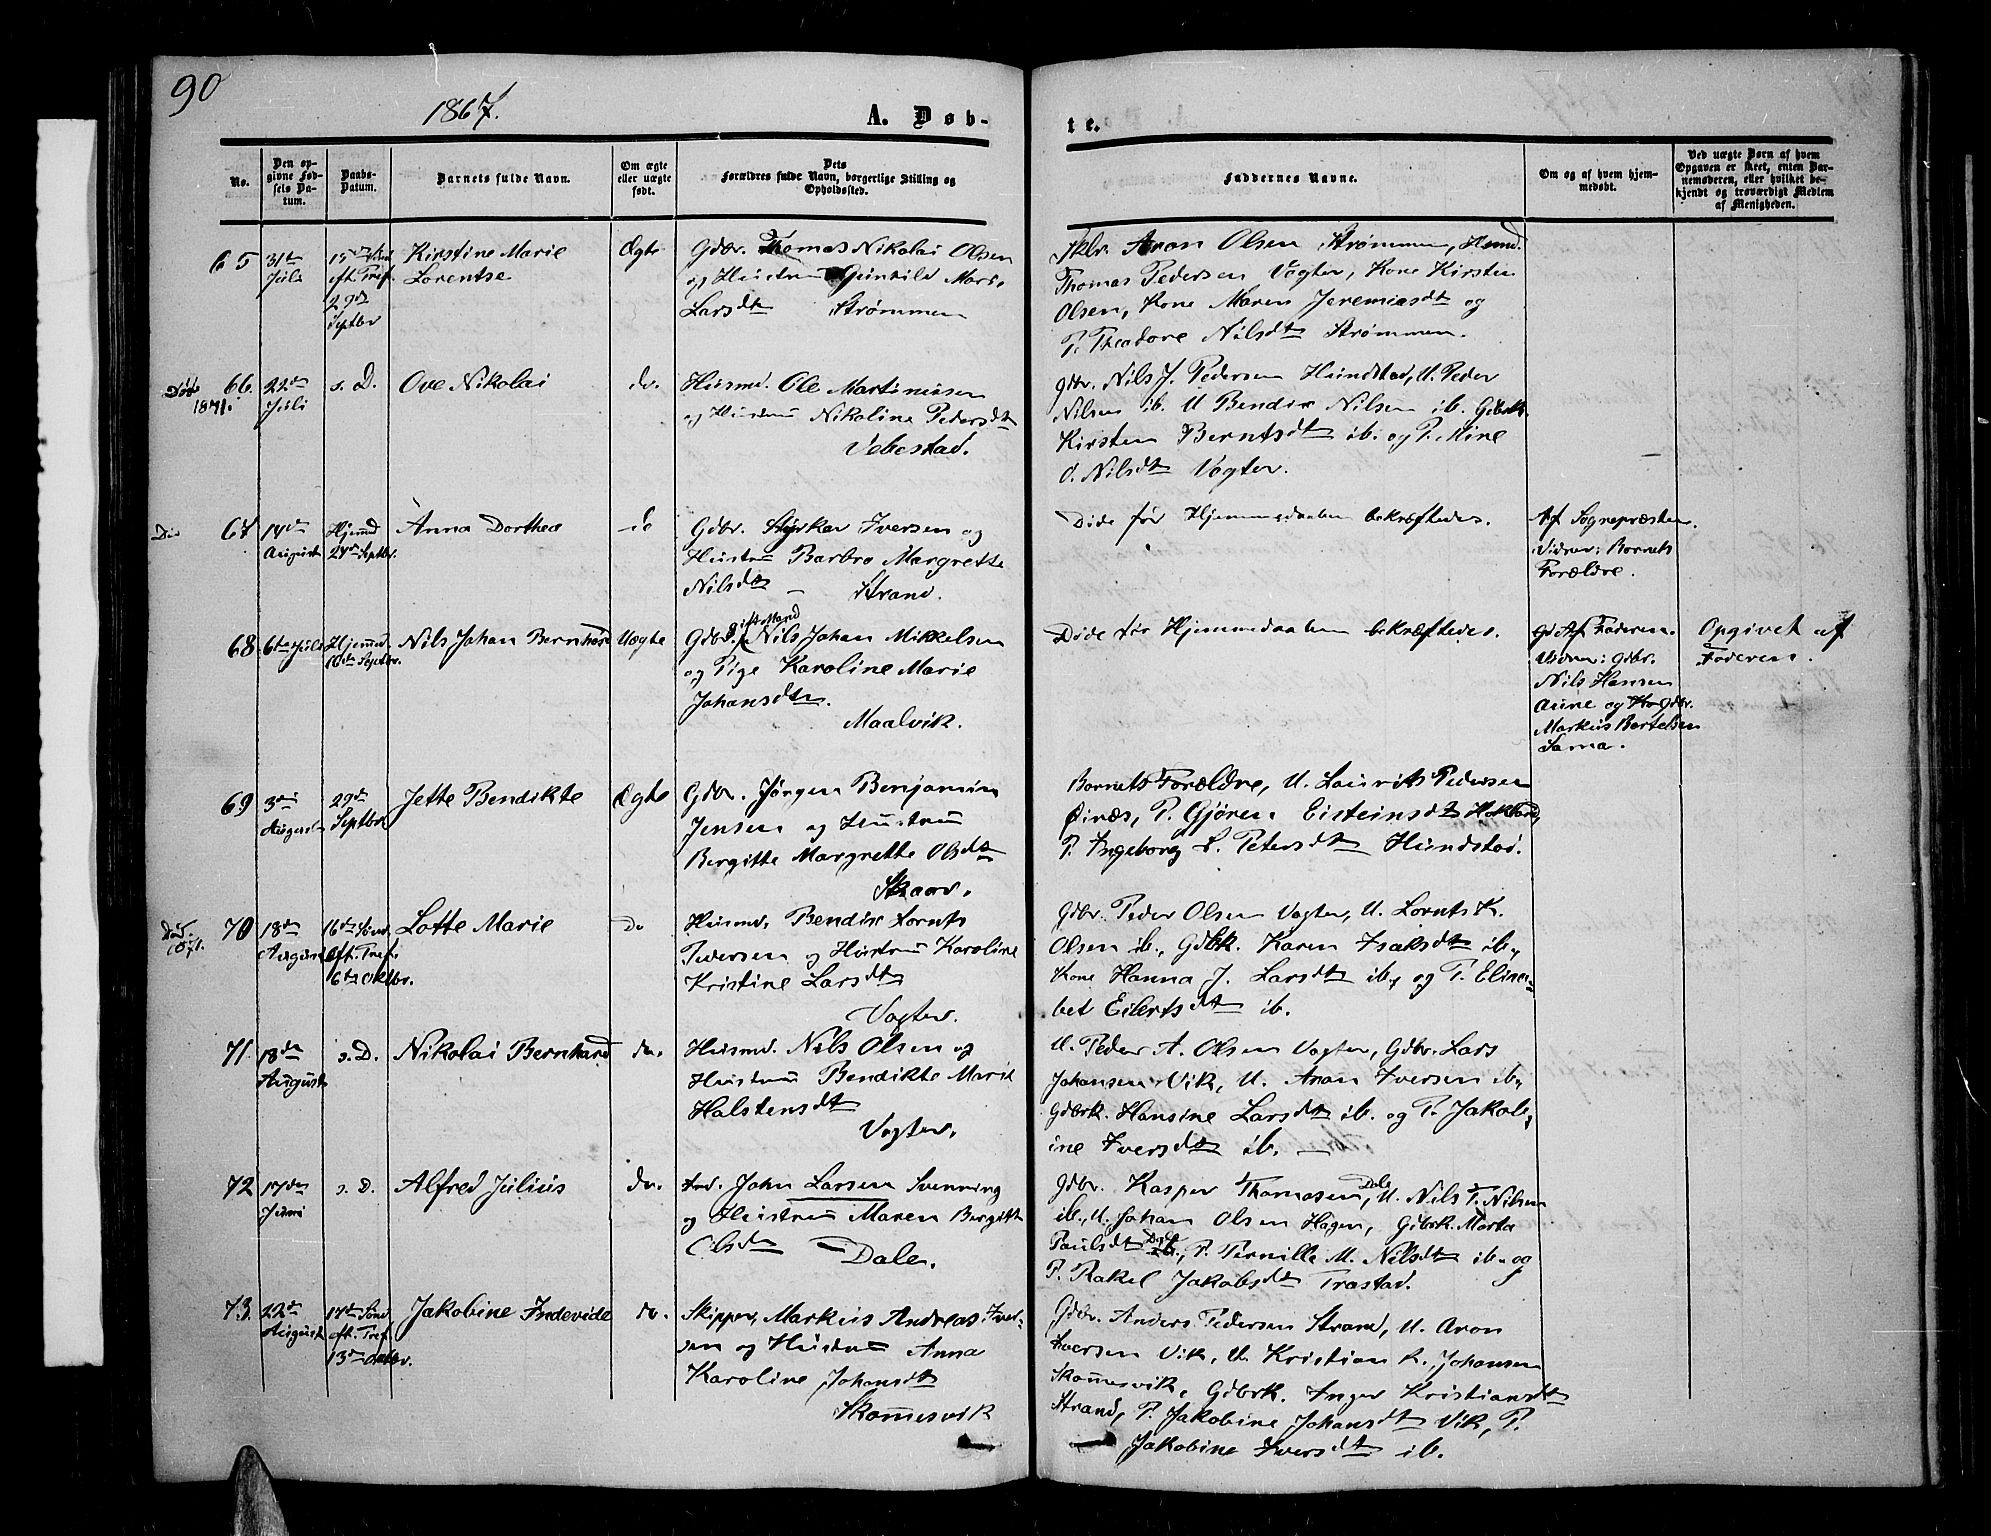 90
1867.
A. Døb-
No.
Den op-
givne Fød-
sels Da-
tum.
Daabs-
Datum.
Barnets fulde Navn.
Om ægte
eller uægte
født.
Dets
Forældres fulde Navn, borgerlige Stilling og
Opholdssted.
65
31te
Juli
29de
Septbr
Kirstine Marie
Lorentse
Ægte
Gdbr. Thomas Nikolai Olsen
og Hustru Gunhild Marie
Larsdtr Strømmen
Død
1871.
66.
22de
Juli
s. D.
Ove Nikolai
do.
Husmd. Ole Martinusen
og Hustru Nikoline Pedersdtr
Vebostad.
67
14de
August
Hjemmd
24de Septbr.
Anna Dorthea
Gdbr. Styrkar Iversen og
Hustru Barbro Margrette
Nilsdtr – Strand.
68
6te Juli
Hjemmd.
Septbr.
Nils Johan Bernhard
Uægte
gift Mand
Gdbr. Nils Johan Mikkelsen
og Pige Karoline Marie
Johansdtr.
Maalvik.
69
3die
August
29de
Septbr
Jette Bendikte
Ægte
Gdbr. Jørgen Benjamin
Jensen og Hustru
Bergitte Margrette Olsdtr
Skaar.
Død.
1871.
70
18de
August
16de Sønd.
eft. Tref.
6te Oktbr.
Lotte Marie
Do
Husmd. Bendix Lornts
Pedersen og Hustru Karoline
Kristine Larsdtr
Vogter.
71.
18de
August
s. D.
Nikolai Bernhard
do.
Husmd. Nils Olsen og
Hustru Bendikte Marie
Halstensdtr
Vogter.
72
17de
Juni
s. D.
Alfred Julius
do.
Ind. John Larsen Svenning
og Hustru Maren Bergitte
Olsdtr – Dale.
73.
22de
August
17de Sønd
eft. Tref.
13de Oktbr.
Jakobine Indevide
do.
Skipper, Markus Andreas Iver-
sen og Hustru Anna
Karoline Johansdtr
Skommesvik
te.
Faddernes Navne.
Om og af hvem hjem-
medøbt.
Ved uægte Børn af hvem
Opgaven er skeet, enten Bar-
nemoderen, eller hvilket be-
kjendt og troværdigt Medlem
af Menigheden.
Aron Olsen Strømmen, Husmd.
Thomas Pedersen Vogter, Kone Kirsten
Olsen, Kone Maren Jeremiasdtr og
P. Theodore Nilsdtr Strømmen.
Gdbr. Nils J. Pedersen Hundstad, U. Peder
Nilsen ib. U Bendix Nilsen ib. Gdbrk.
Kirsten Berntsdtr ib. og P. Mine
O. Nilsdtr Vogter.
Døde før Hjemmedaaben bekræftedes.
Af Sognepresten.
Vidner: Barnets
Forældre.
Døde før Hjemmedaaben bekræftedes.
Af Faderen.
Vidner: Gdbr.
Nils Hansen
Aune og Gdbr.
Markus Bertelsen
Sama.
Opgivet af
Faderen.
Barnets Forældre, U. Laurits Pedersen
Øinæs, P. Gjøren Eisteinsdtr
P. Ingeborg L. Petersdtr Hundstad.
Gdbr. Peder Olsen Vogter, U. Lornts K.
Olsen ib., Gdbk. Karen Isaksdtr ib.,
Kone Hanna J. Larsdtr ib., og P. Elisa-
bet Eilertsdtr ib.
U. Peder A. Olsen Vogter, Gdbr. Lars
Johansen Vik, U. Aron Iversen ib.,
Gdbrk. Hansine Larsdtr ib. og P. Jakob-
ine Iversdtr ib. –
Gdbr. Kasper Thomasen Dale, U. Nils T. Nilsen
ib., U. Johan Olsen Hagen, Gdbrk. Marta
Paulsdtr Dale, P. Pernille M. Nilsdtr ib. og
P. Rakel Jakobsdtr Trastad.
Gdbr. Anders Pedersen Strand, U. Aron
Iversen Vik, U. Kristian R. Johansen
Skommesvik, Gdbrk. Inger Kristiansdtr
Strand, P. Jakobine Johansdtr Vik, P.
Jakobine Iversdtr ib.